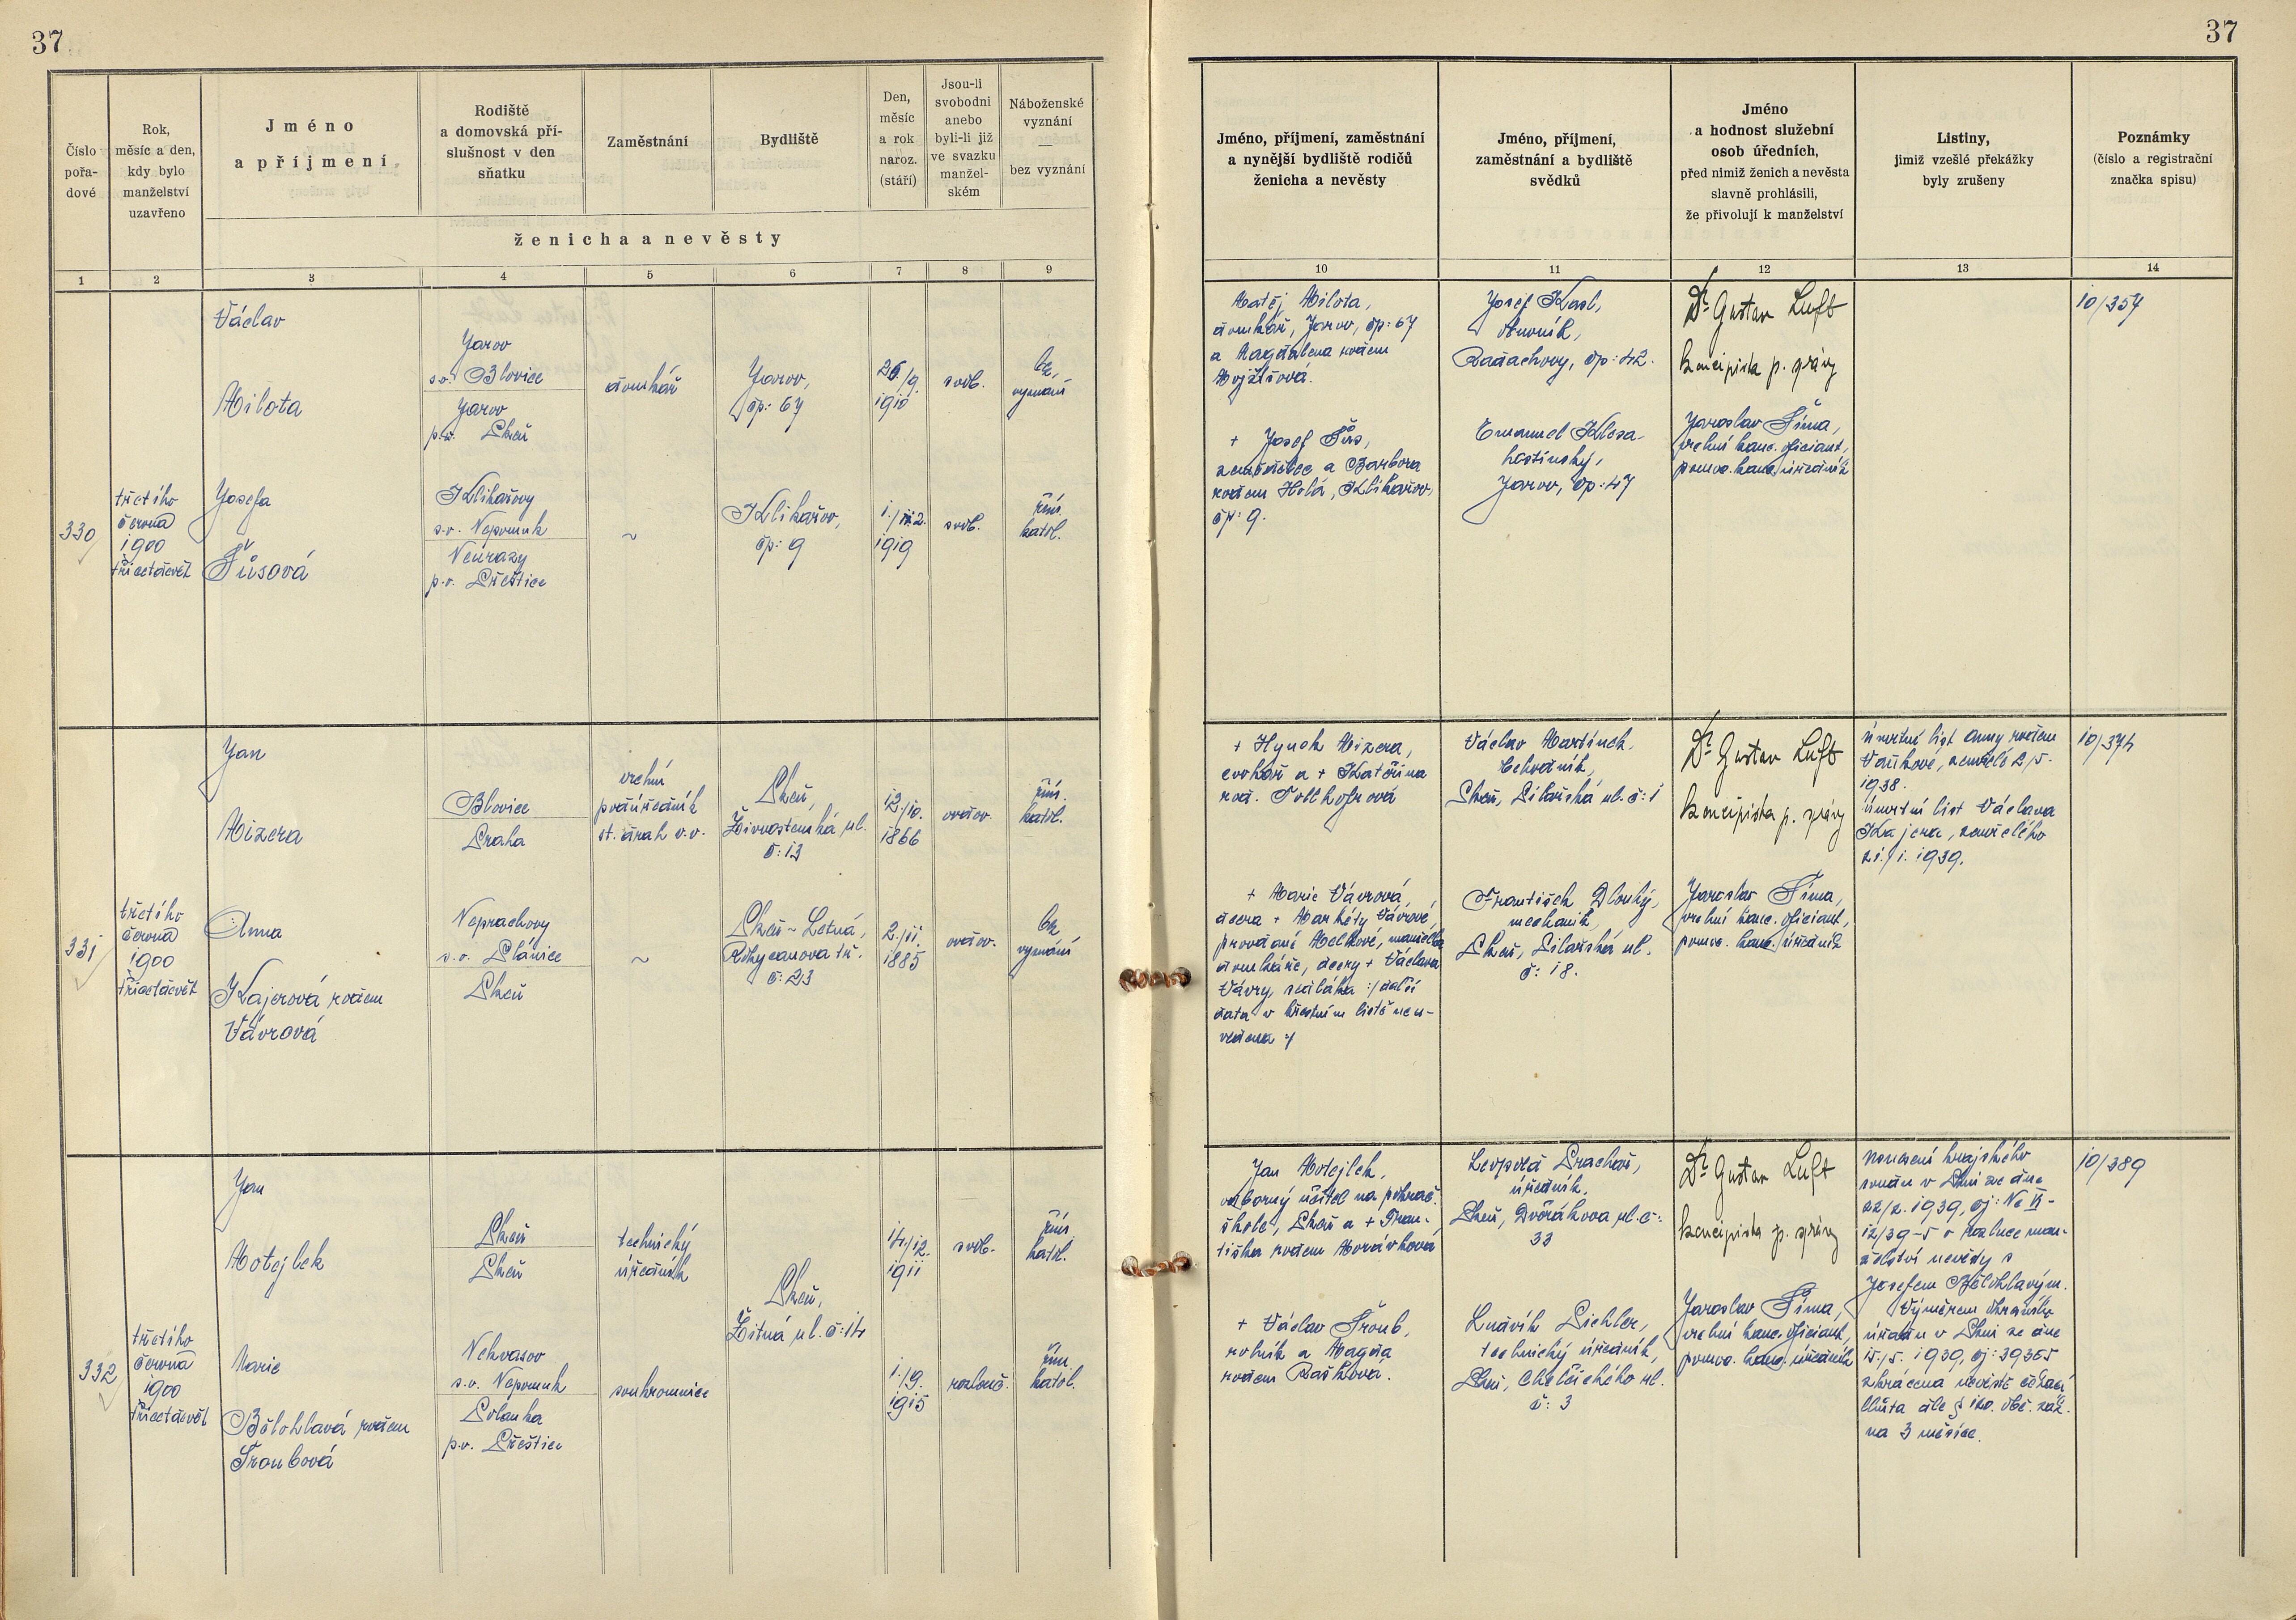 37
37
Číslo
pořa-
dové
Rok,
měsíc a den,
kdy bylo
manželství
uzavřeno
Jméno
a příjmení
Rodiště
a domovská pří-
slušnost v den
sňatku
Zaměstnání
Bydliště
Den,
měsíc
a rok
naroz.
(stáří)
Jsou-li
svobodni
anebo
byli-li již
ve svazku
manžel-
ském
Náboženské
vyznání
—
bez vyznání
ženicha a nevěsty
Jméno, příjmení, zaměstnání
a nynější bydliště rodičů
ženicha a nevěsty
Jméno, příjmení,
zaměstnání a bydliště
svědků
Jméno
a hodnost služební
osob úředních,
před nimiž ženich a nevěsta
slavně prohlásili,
že přivolují k manželství
Listiny,
jimiž vzešlé překážky
byly zrušeny
Poznámky
(číslo a registrační
značka spisu)
1 2 3 4 5 6 7 8 9 10 11 12 13 14
330
třetího
června
1900
třicetdevět
Václav
Milota
Jarov
s.o. Blovice
Jarov
p.o. Plzeň
domkář
Jarov,
čp: 67
26/9.
1910
svob.
bez
vyznání
Josefa
Šůsová
Klikařovy
s.o. Nepomuk
Neurazy
p.o. Přeštice
~
Klikařov,
čp: 9
1919
svob.
řím.
katol.
Matěj Milota,
domkář, Jarov, čp: 67
a Magdalena rodem
Mojžíšová.
+ Josef Šůs,
zemědělec a Barbora
rodem Holá, Klikařov,
čp: 9.
Josef Kasl,
obuvník,
čp: 42.
Emanuel Klesa
hostinský,
Jarov, čp: 47
Dr. Gustav Luft
koncipista p. správy
Jaroslav Šíma,
vrchní kanc. oficiant,
pomoc. kanc. úředník
10/357
331
třetího
června
1900
třicetdevět
Jan
Mizera
Blovice
Praha
vrchní
podúředník
st. drah v.v.
Plzeň,
Živnostenská ul.
č: 13
12/10.
1866
ovdov.
řím.
katol.
Anna
Kajerová rodem
Vávrová
Neprachovy
s.o. Plánice
Plzeň
~
Plzeň-Letná,
Rokycanova tř.
č: 23
2./11.
1885
ovdov.
bez
vyznání
+ Hynek Mizera,
cvokař a + Kateřina
rod. Tollhofrová
+ Marie Vávrová,
dcera + Markéty Vávrové,
provdané Melkové, manželka
domkáře, dcery + Václava
Vávry, sedláka :/ další
data v křestním listě neu-
vedena :/
Václav Martínek,
Plzeň, Pilařská ul. č: 1
František Dlouhý,
mechanik,
Plzeň, Pilařská ul.
č: 18.
Dr. Gustav Luft
koncipista p. správy
Jaroslav Šíma,
vrchní kanc. oficiant,
pomoc. kanc. úředník
Úmrtní list Anny rodem
Vaňkové, zemřelé 2/5.
1938.
Úmrtní list Václava
Kajera, zemřelého
21./1. 1939.
10/374
332
třetího
června
1900
třicetdevět
Jan
Motejlek
Plzeň
Plzeň
technický
úředník
Plzeň,
Žitná ul. č: 14
14/12.
1911
svob.
řím.
katol.
Marie
Bělohlavá rodem
Troubová
Nehvasov
s.o. Nepomuk
Polanka
p.o. Přeštice
soukromnice
1./9.
1915
rozlouč.
řím.
katol.
Jan Motejlek,
odborný učitel na pokrač.
škole, Plzeň a + Fran-
tiška rodem Morávková
+ Václav Troub,
rolník a Magda
rodem Bašková.
Leopold Prachař,
úředník,
Plzeň, Dvořákova ul. č:
33
Ludvík Pichler,
technický úředník,
Plzeň, Chelčického ul.
č: 3
Dr. Gustav Luft
koncipista p. správy
Jaroslav Šíma,
vrchní kanc. oficiant,
pomoc. kanc. úředník
Usnesení krajského
soudu v Plzni ze dne
22/2. 1939, čj: Nc VI-
12/39-5 o rozluce man-
želství nevěsty s
Josefem Bělohlavým.
Výměrem okresního
úřadu v Plzni ze dne
15./5. 1939, čj: 39365
zkrácena nevěstě čekací
lhůta dle § 120. obč. zák.
na 3 měsíce.
10/389